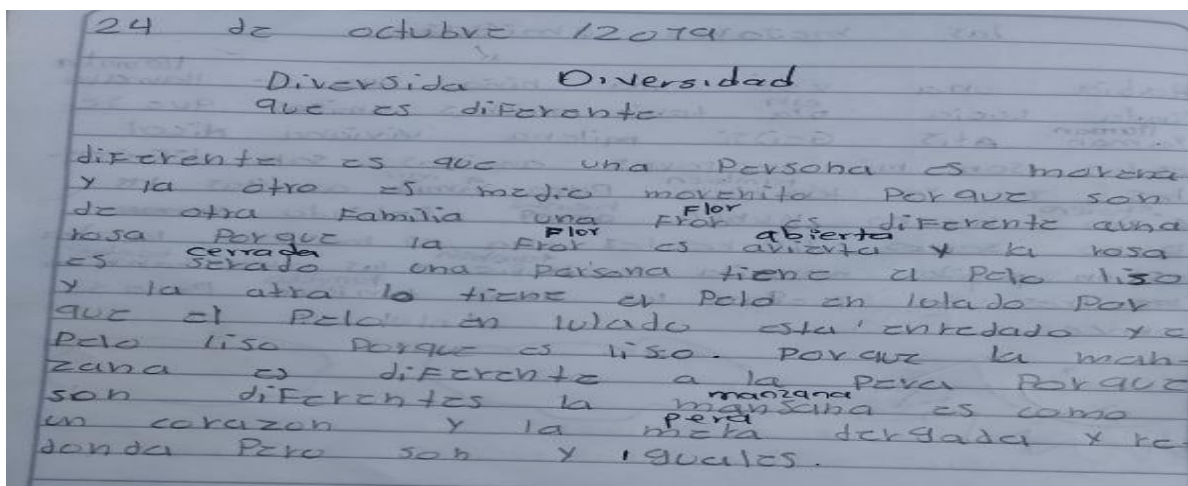 24 de octubre /2019
Diversida Diversidad
que es diferente
diferente es que una Persona es morena
y la otro es medio morenito Porque son
de otra Familia una Fror Flor es diferente auna
rosa Porque la Fror Flor es avierta abierta y la rosa
es serado cerrada una persona tiene el Pelo liso
y la otra lo tiene el Pelo en lulado Por
que el Pelo en lulado esta enredado y e
Pelo liso Porque es liso. Porque la man-
zana es diferente a la Pera Porque
son diFerentes la mansana manzana es como
un corazon y la pera dergada y re
donda Pero son y iguales.